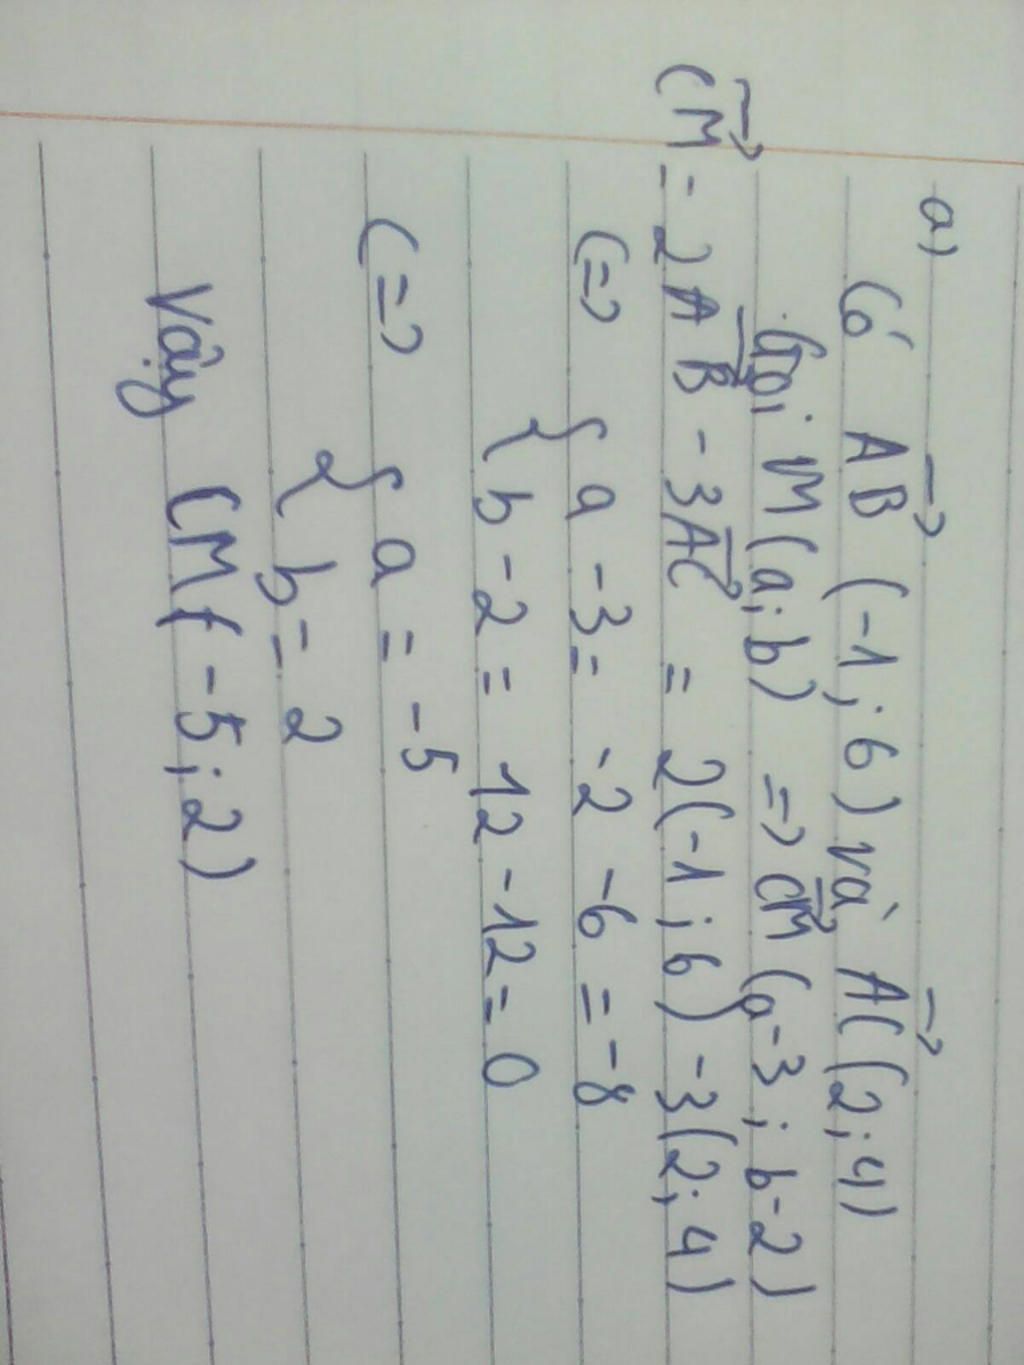 a)
Có AB→ (-1; 6) và AC→ (2; 4)
Gọi M(a; b) => CM→ (a-3; b-2)
CM→ = 2AB→ - 3AC→ = 2(-1; 6) - 3(2; 4)
(=> { a - 3 = -2 - 6 = -8
{ b - 2 = 12 - 12 = 0
(=> { a = -5
{ b = 2
Vậy CM( -5; 2)